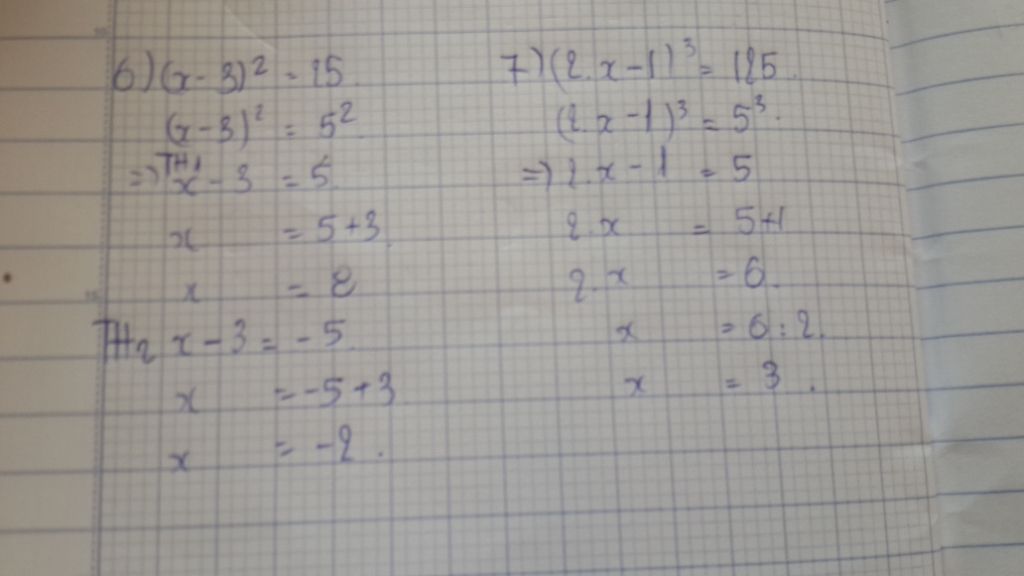 6) (x - 3)² = 25
(x - 3)² = 5²
=> TH1 x - 3 = 5
x = 5 + 3
x = 8
TH2 x - 3 = -5
x = -5 + 3
x = -2.
7) (2.x - 1)³ = 125.
(2.x - 1)³ = 5³.
=> 2.x - 1 = 5
2.x = 5 + 1
2.x = 6.
x = 6 : 2.
x = 3.